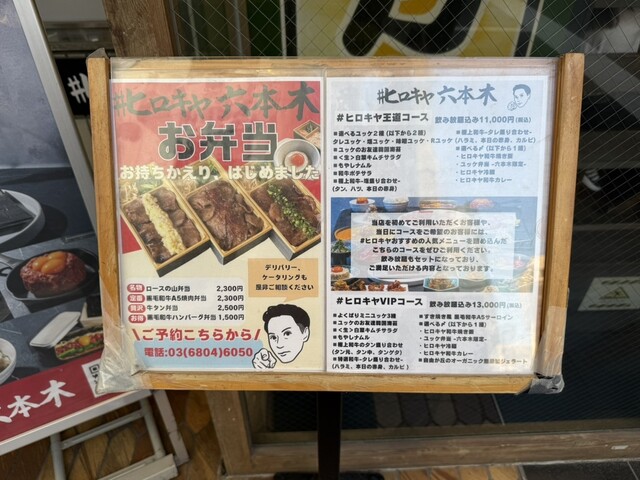 #ヒロキヤ 六本木
お弁当
お持ちかえり、はじめました
デリバリー、
ケータリングも
是非ご相談ください
名物 ロースの山弁当 2,300円
定番 黒毛和牛A5焼肉弁当 2,300円
贅沢 牛タン弁当 2,500円
お得 黒毛和牛ハンバーグ弁当 1,500円
\ご予約こちらから/
電話:03(6804)6050
#ヒロキヤ 六本木
#ヒロキヤ王道コース 飲み放題込み11,000円(税込)
※選べるユッケ2種(以下から2種)
タレユッケ・塩ユッケ・
※ユッケのお友達韓国海苔
※<生>白菜キムチサラダ
※もやしナムル
※和牛ポテサラ
※極上和牛-塩盛り合わせ-
(タン、ハツ、本日の赤身)
※極上和牛-タレ盛り合わせ-
(ハラミ、本日の赤身、カルビ)
※選べる〆(以下から1種)
・ヒロキヤ和牛焼き飯
・ユッケ弁当 -六本木限定-
・ヒロキヤ冷麺
・ヒロキヤ和牛カレー
当店を初めてご利用いただくお客様や、
当日にコースをご希望のお客様には、
#ヒロキヤおすすめの人気メニューを詰め込んだ
こちらのコースをぜひご利用ください。
飲み放題もセットになっており、
ご満足いただける内容となっております。
#ヒロキヤVIPコース 飲み放題込み13,000円(税込)
※よくばりミニユッケ3種
※ユッケのお友達韓国海苔
※<生>白菜キムチサラダ
※もやしナムル
※極上和牛のタン盛り合わせ-
(タン元、タン中、タンゲタ)
※特選和牛-タレ盛り合わせ-
(ハラミ、本日の赤身、カルビ)
※すき焼き風 黒毛和牛A5サーロイン
※選べる〆(以下から1種)
・ヒロキヤ和牛焼き飯
・ユッケ弁当 -六本木限定-
・ヒロキヤ冷麺
・ヒロキヤ和牛カレー
※自由が丘のオーガニック
ジェラート
六本木